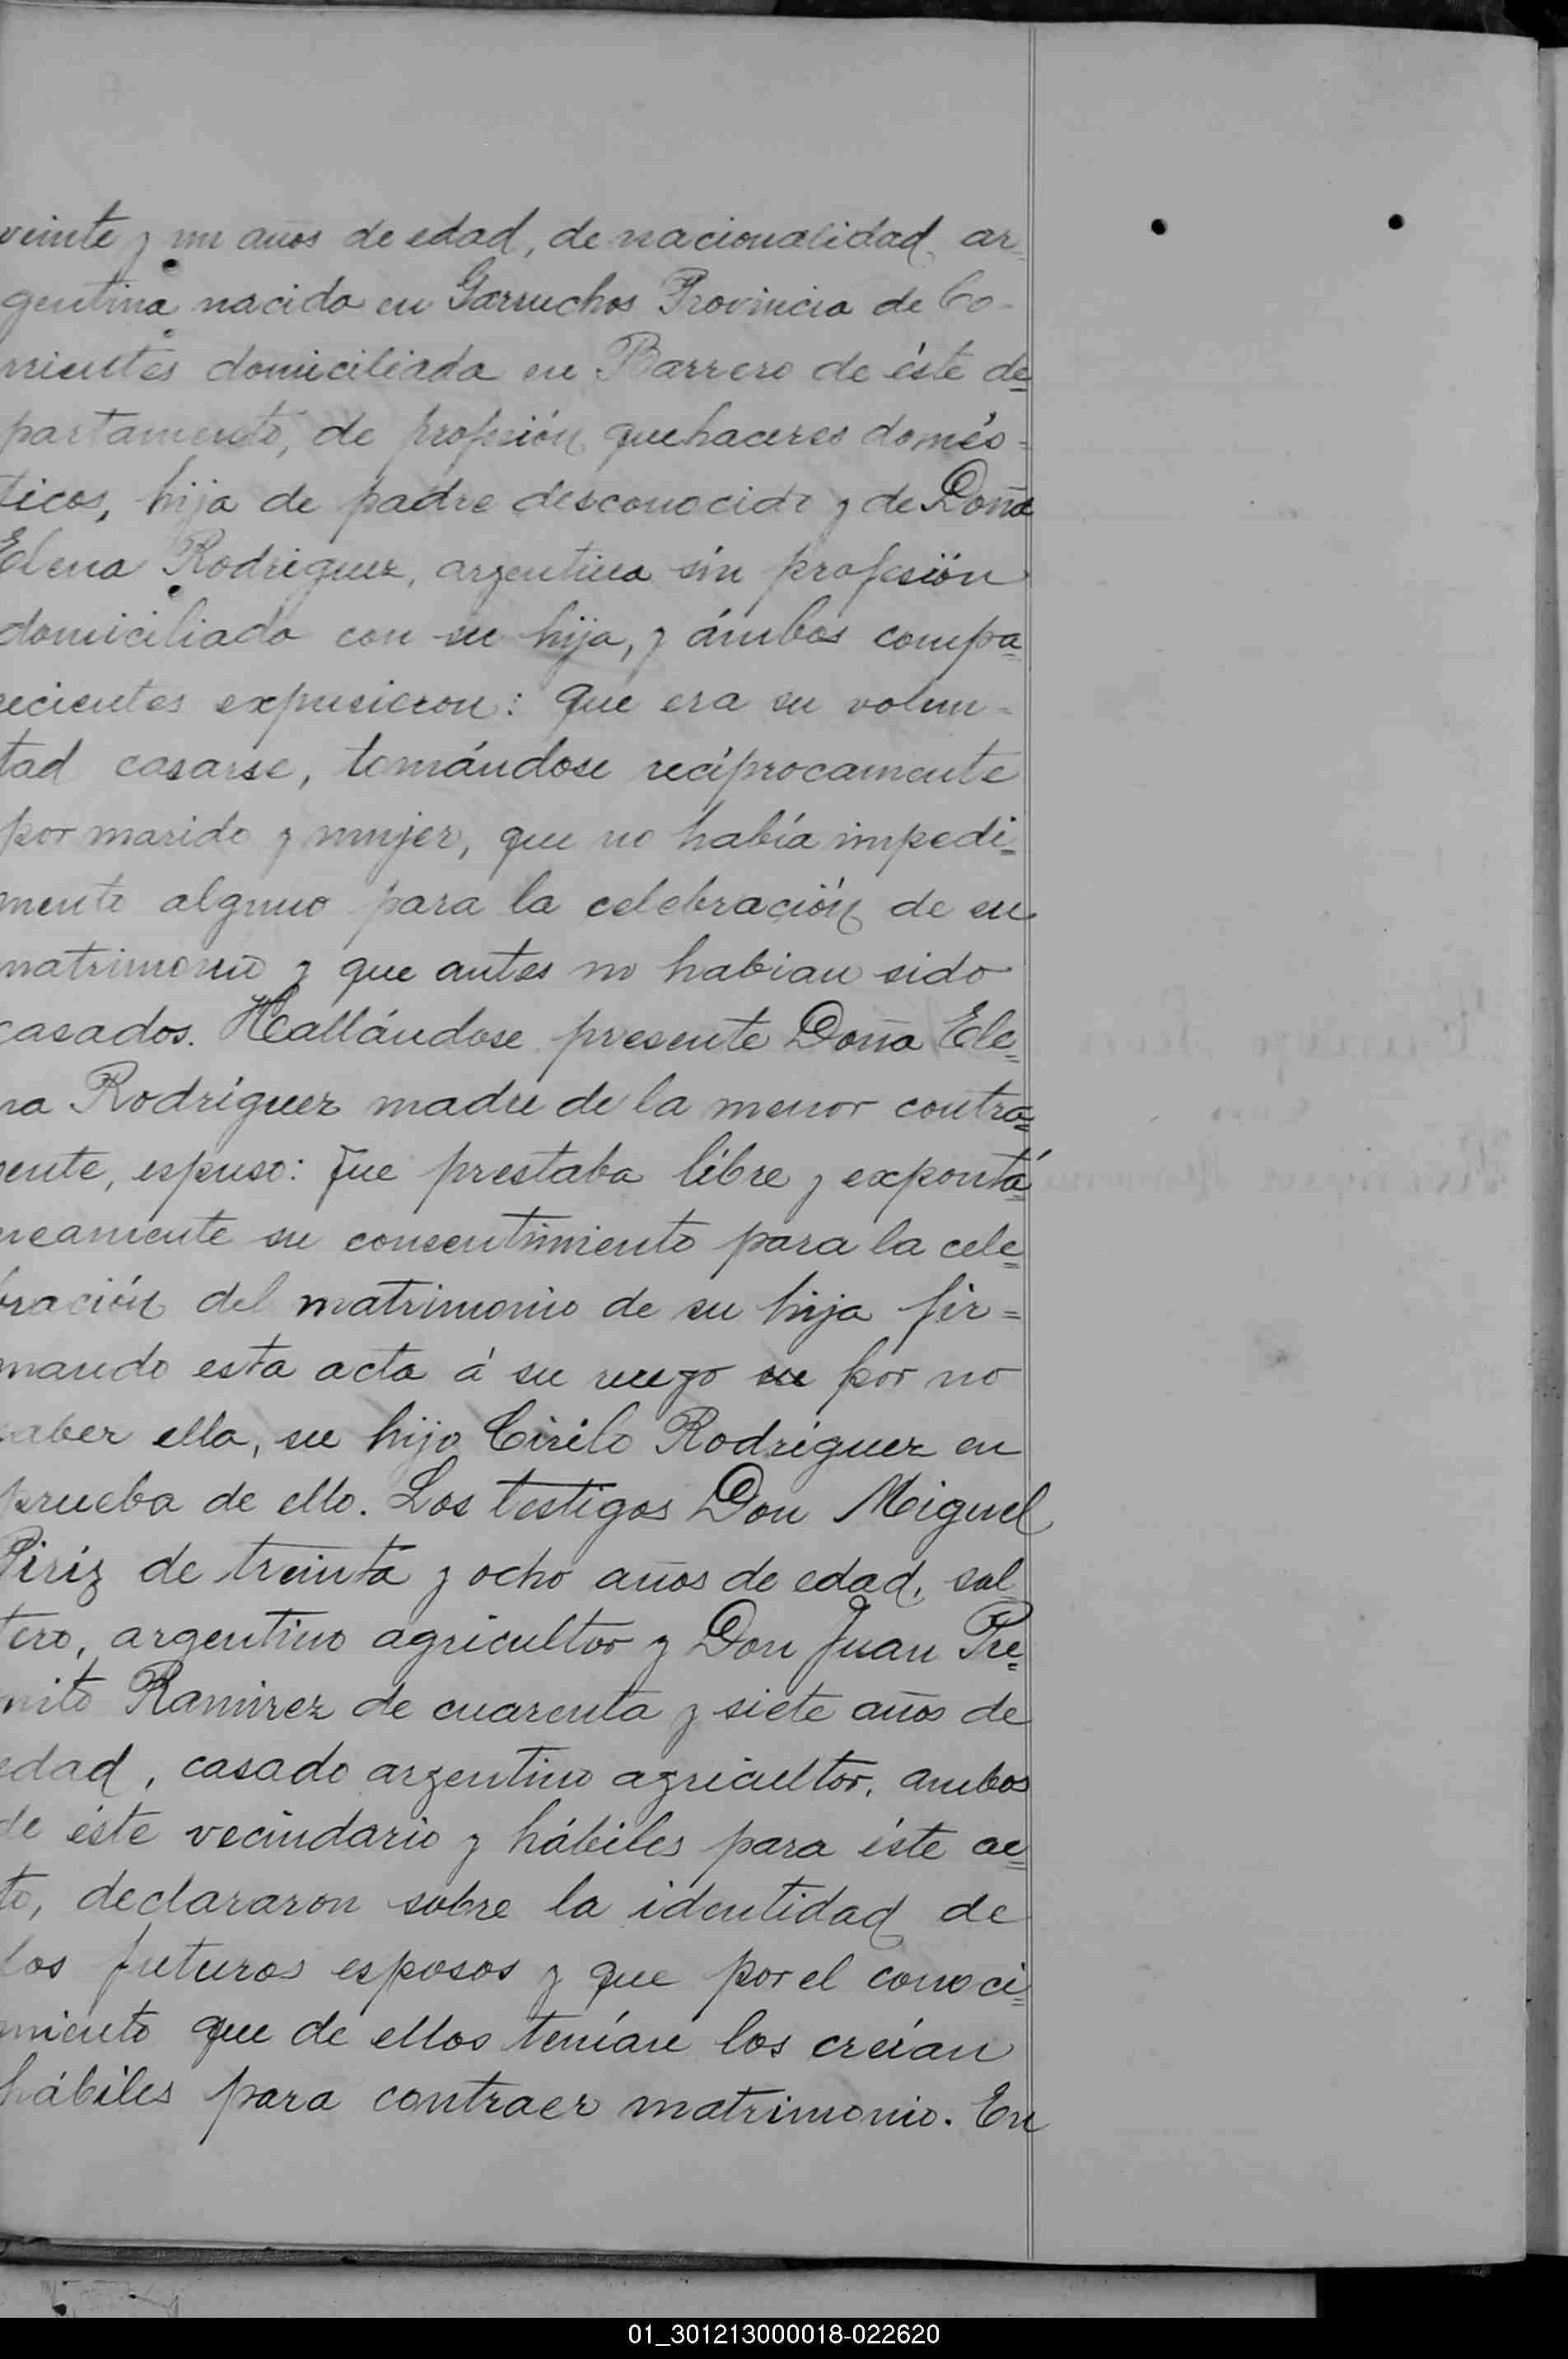 veinte y un años de edad, de nacionalidad ar
gentina nacida en Garruchos Provincia de Co-
rrientes domiciliada en Barrero de éste de=
partamento, de profesión quehaceres domés=
ticos, hija de padre desconocido y de Doña
Elena Rodriguez, argentina sin profesión
domiciliada con su hija, y ámbos compa=
recientes expusieron: que era su volun-
tad casarse, tomándose recíprocamente
por marido y mujer, que no había impedi=
mento alguno para la celebración de su
matrimonio y que antes no habian sido
casados. Hallándose presente Doña Ele=
na Rodríguez madre de la menor contra=
yente, espuso: que prestaba libre y expontá
neamente su consentimiento para la cele=
bración del matrimonio de su hija fir=
mando esta acta á su ruego su por no
saber ella, su hijo Cirilo Rodríguez en
prueba de ello. Los testigos Don Miguel
Piriz de treinta y ocho años de edad, sol
tero, argentino agricultor y Don Juan Pre=
nito Ramirez de cuarenta y siete años de
edad, casado argentino agricultor, ambos
de éste vecindario y hábiles para éste ac=
to, declararon sobre la identidad de
los futuros esposos y que por el conoci=
miento que de ellos tenían los creían
hábiles para contraer matrimonio. En
01_301213000018-022620